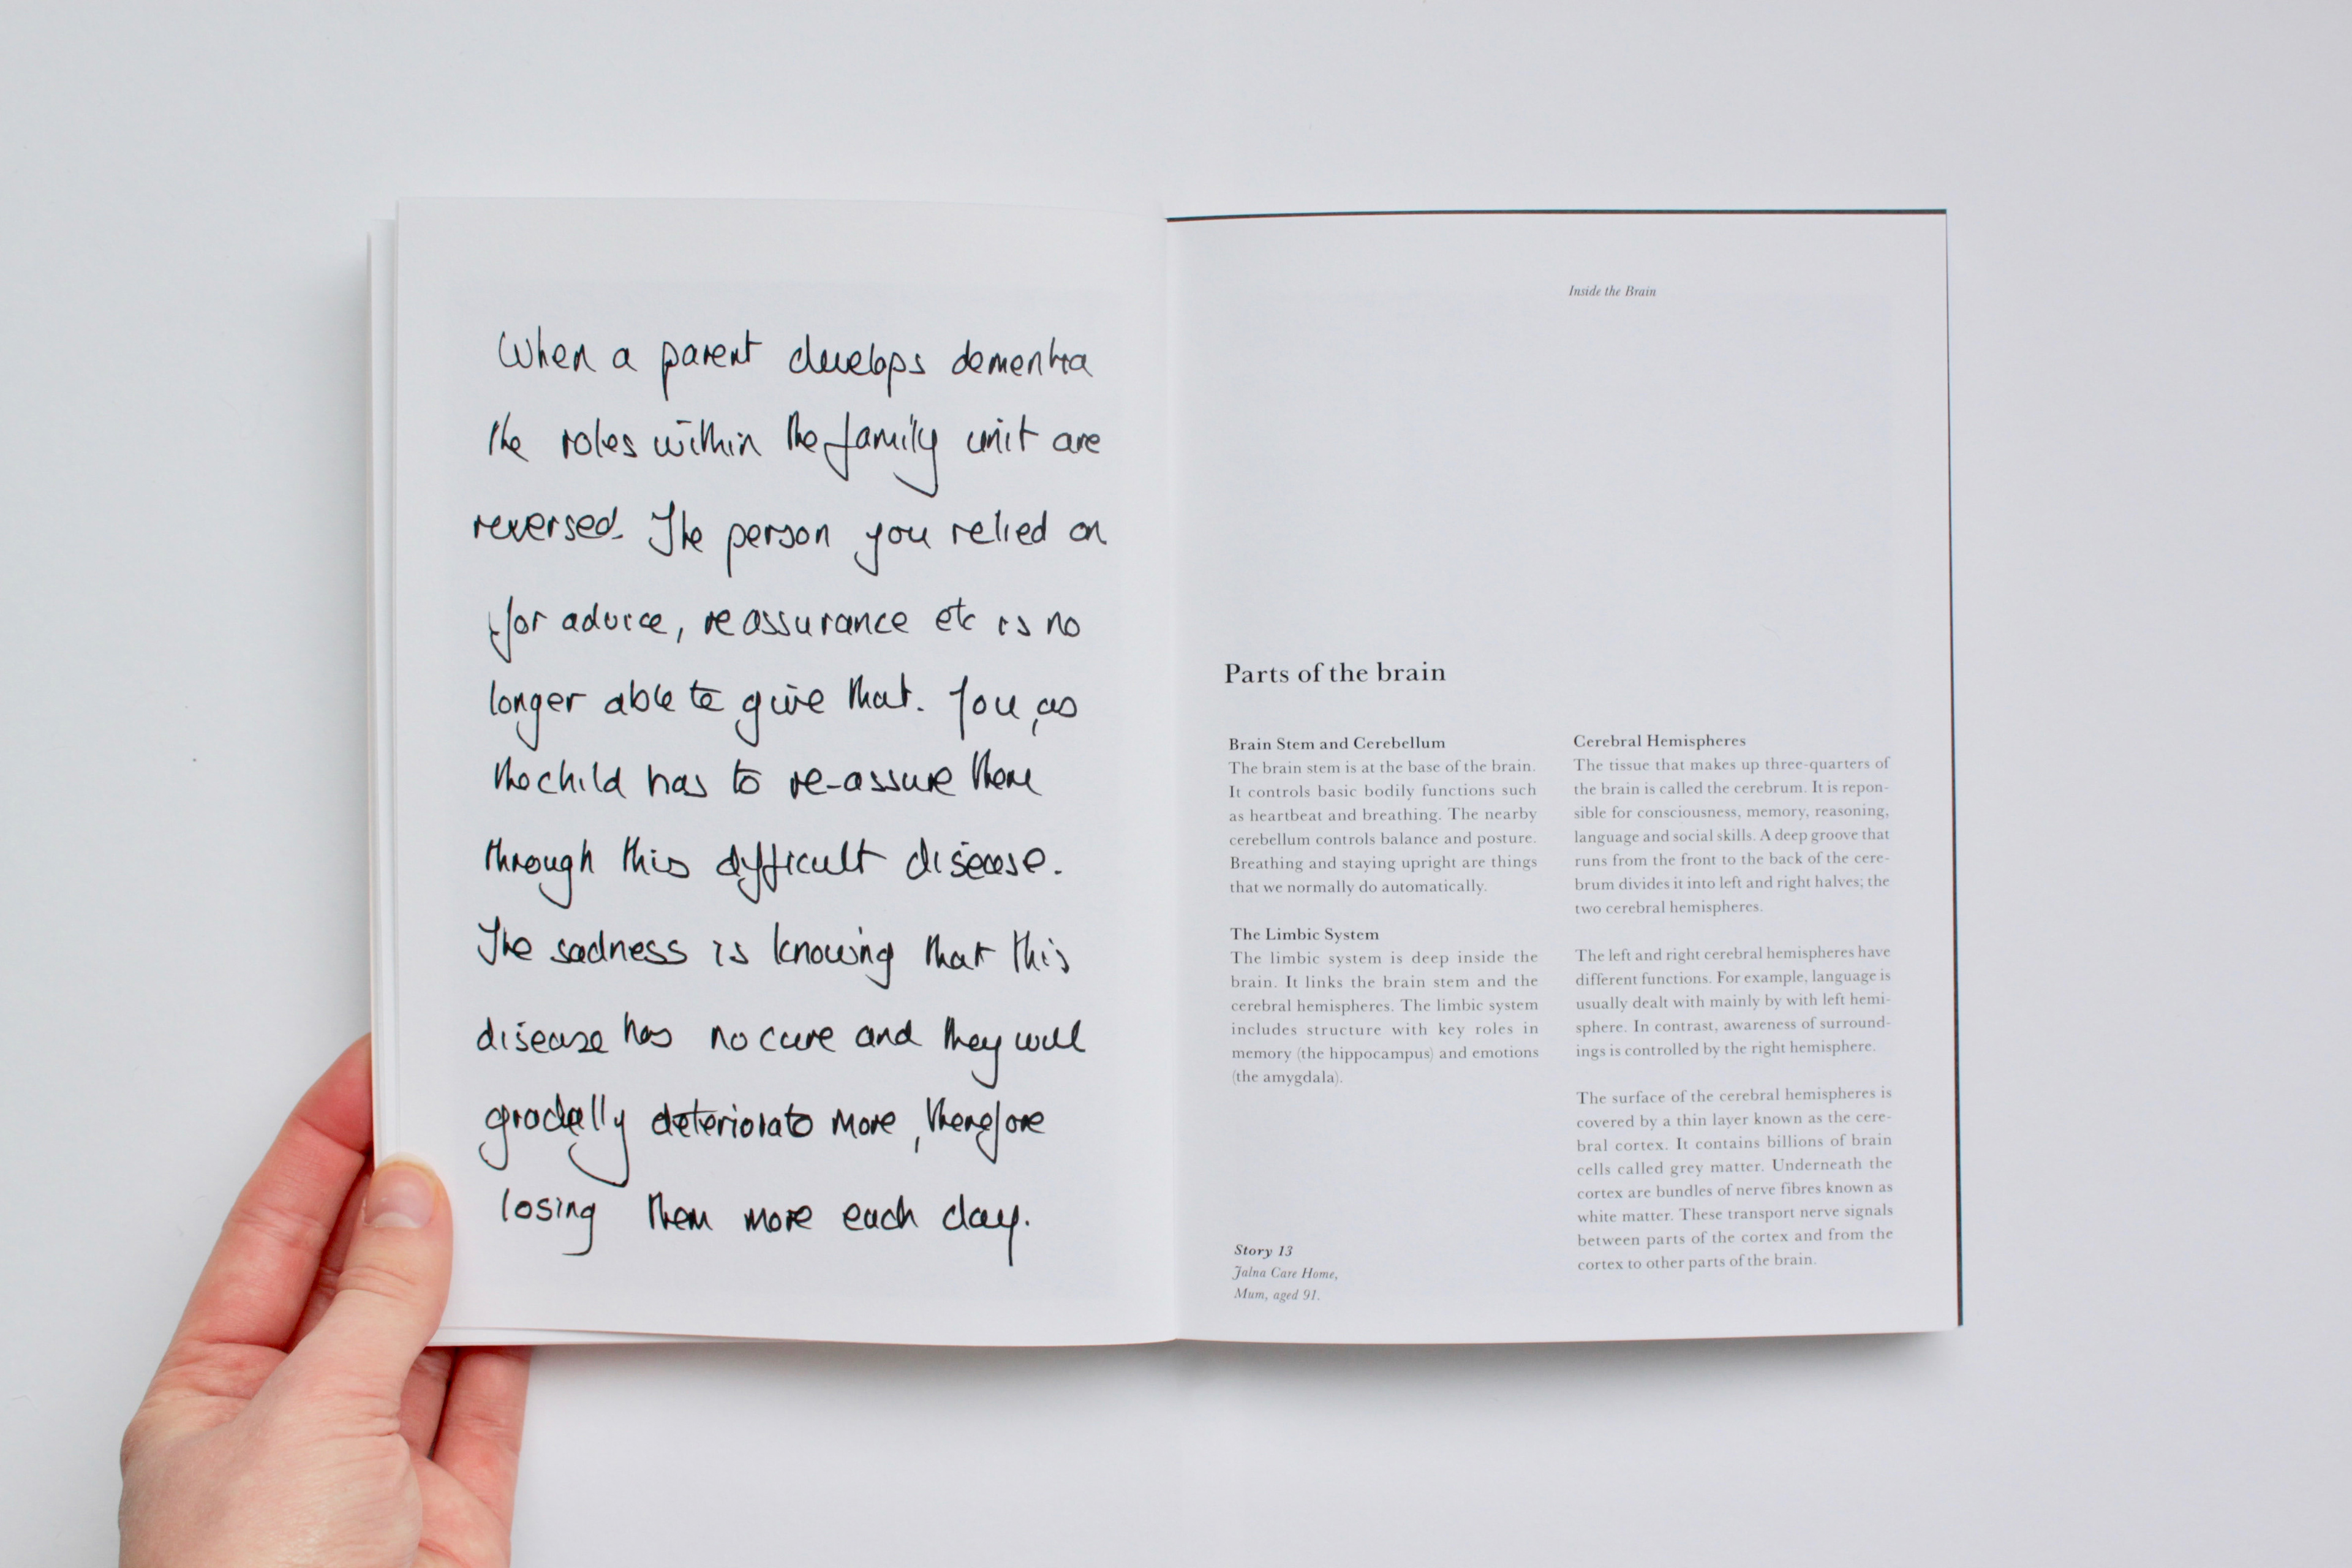 When a parent develops dementia
the roles within the family unit are
reversed. The person you relied on
for advice, reassurance etc is no
longer able to give that. You, as
the child has to re-assure them
through this difficult disease.
The sadness is knowing that this
disease has no cure and they will
gradually deteriorate more, therefore
losing them more each day.
Inside the Brain
Parts of the brain
Brain Stem and Cerebellum
The brain stem is at the base of the brain.
It controls basic bodily functions such
as heartbeat and breathing. The nearby
cerebellum controls balance and posture.
Breathing and staying upright are things
that we normally do automatically.
The Limbic System
The limbic system is deep inside the
brain. It links the brain stem and the
cerebral hemispheres. The limbic system
includes structure with key roles in
memory (the hippocampus) and emotions
(the amygdala).
Story 13
Jalna Care Home,
Mum, aged 91.
Cerebral Hemispheres
The tissue that makes up three-quarters of
the brain is called the cerebrum. It is repon-
sible for consciousness, memory, reasoning,
language and social skills. A deep groove that
runs from the front to the back of the cere-
brum divides it into left and right halves; the
two cerebral hemispheres.
The left and right cerebral hemispheres have
different functions. For example, language is
usually dealt with mainly by with left hemi-
sphere. In contrast, awareness of surround-
ings is controlled by the right hemisphere.
The surface of the cerebral hemispheres is
covered by a thin layer known as the cere-
bral cortex. It contains billions of brain
cells called grey matter. Underneath the
cortex are bundles of nerve fibres known as
white matter. These transport nerve signals
between parts of the cortex and from the
cortex to other parts of the brain.